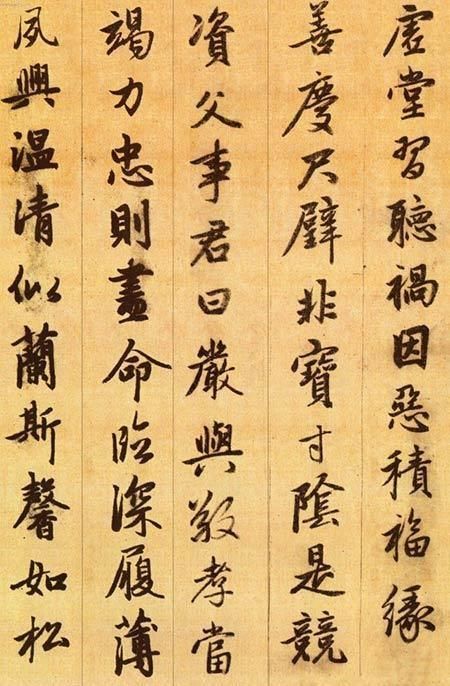 虚堂習聽禍因惡積福緣
善慶尺璧非寶寸陰是競
資父事君曰嚴與敬孝當
竭力忠則盡命臨深履薄
夙興温清似蘭斯馨如松